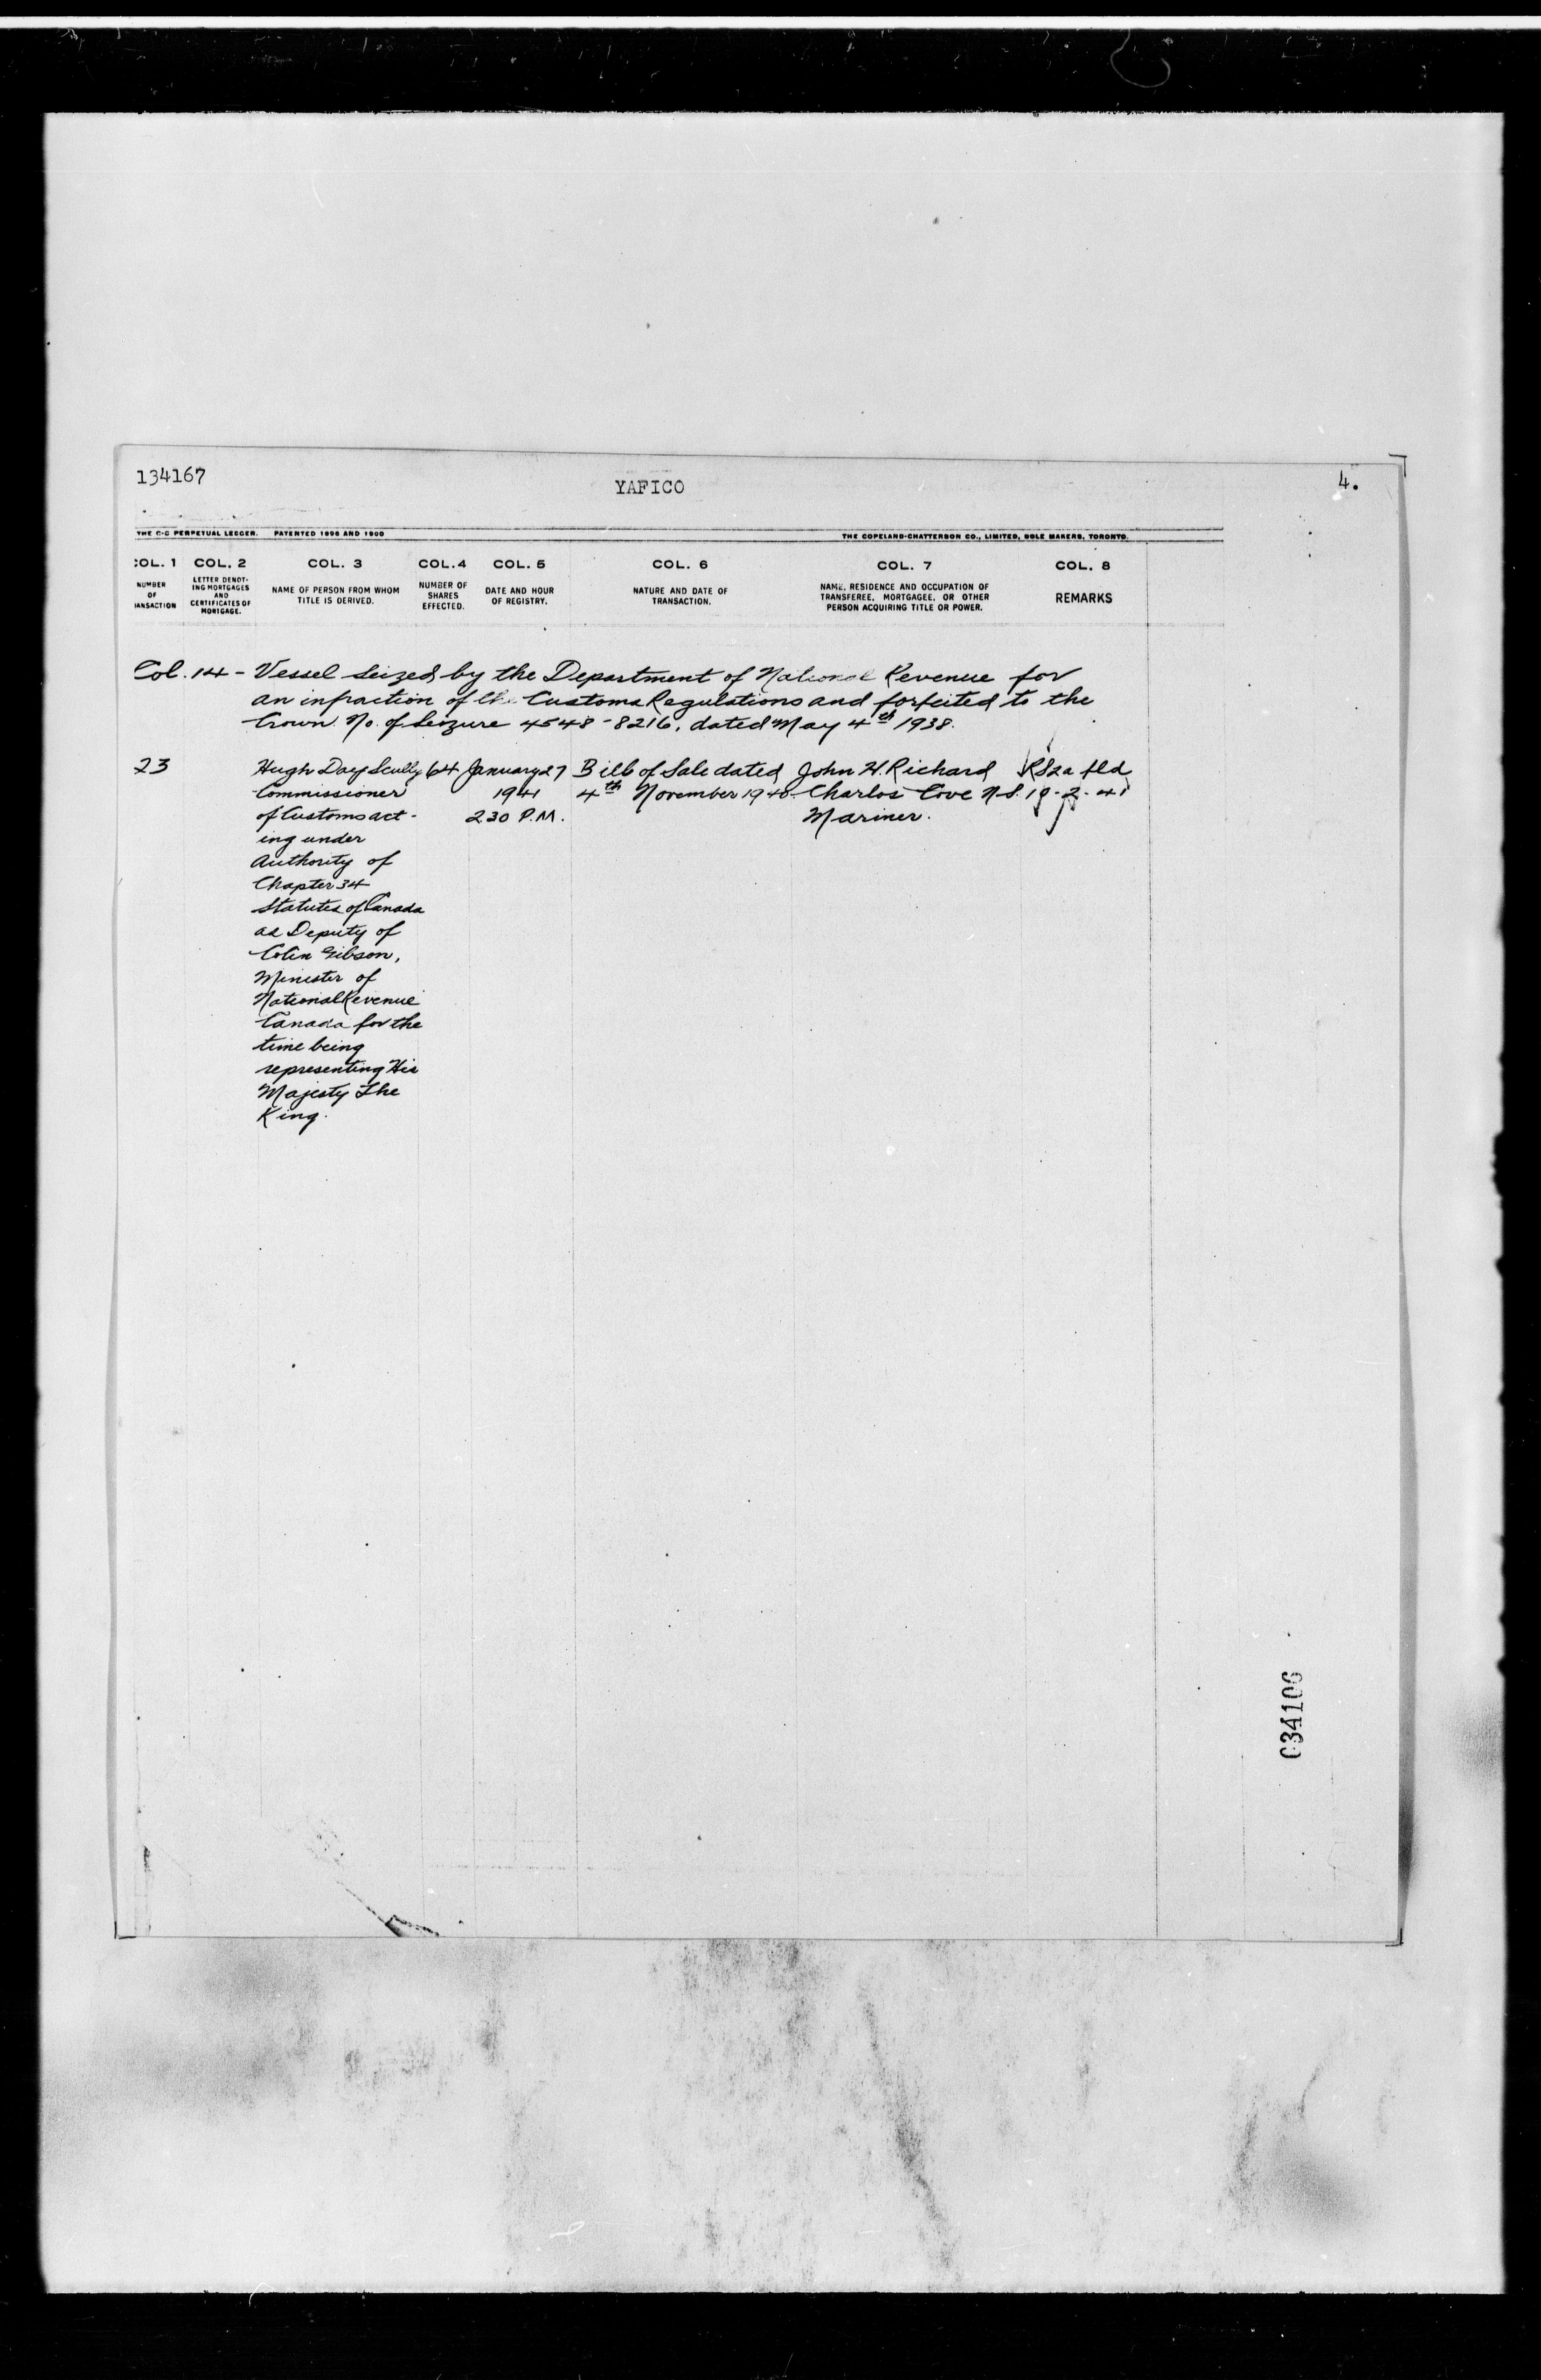 134167
YAFICO
4.
THE C-C PERPETUAL LEDGER. PATENTED 1896 AND 1900
THE COPELAND-CHATTERSON CO., LIMITED, SOLE MAKERS, TORONTO.
COL. 1 COL. 2 COL. 3 COL. 4 COL. 5 COL. 6 COL. 7 COL. 8
NUMBER
OF
ANSACTION
LETTER DENOT-
ING MORTGAGES
AND
CERTIFICATES OF
MORTGAGE.
NAME OF PERSON FROM WHOM
TITLE IS DERIVED.
NUMBER OF
SHARES
EFFECTED.
DATE AND HOUR
OF REGISTRY.
NATURE AND DATE OF
TRANSACTION.
NAME, RESIDENCE AND OCCUPATION OF
TRANSFEREE, MORTGAGEE, OR OTHER
PERSON ACQUIRING TITLE OR POWER.
REMARKS
Col. 14 - Vessel seized by the Department of National Revenue for
an infraction of the Customs Regulations and forfeited to the
Crown. No. of Seizure 4548-8216, dated May 4th 1938.
23
Hugh Day Scully
Commissioner
of Customs act-
ing under
Authority of
Chapter 34
Statutes of Canada
as Deputy of
Colin Gibson,
Minister of
National Revenue
Canada for the
time being
representing His
Majesty The
King.
64
January 27
1941
2.30 P.M.
Bill of Sale dated
4th November 1940
John H. Richard
Charlos Cove N.S.
Mariner.
RS2a fld
19-2-41
034106